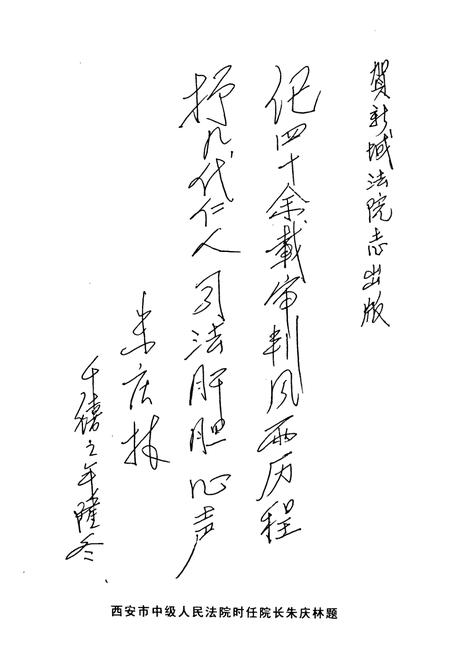 贺新城法院志出版
纪四十余载审判风雨历程
抒几代仁人司法肝胆心声
朱庆林
千禧之年隆冬
西安市中级人民法院时任院长朱庆林题